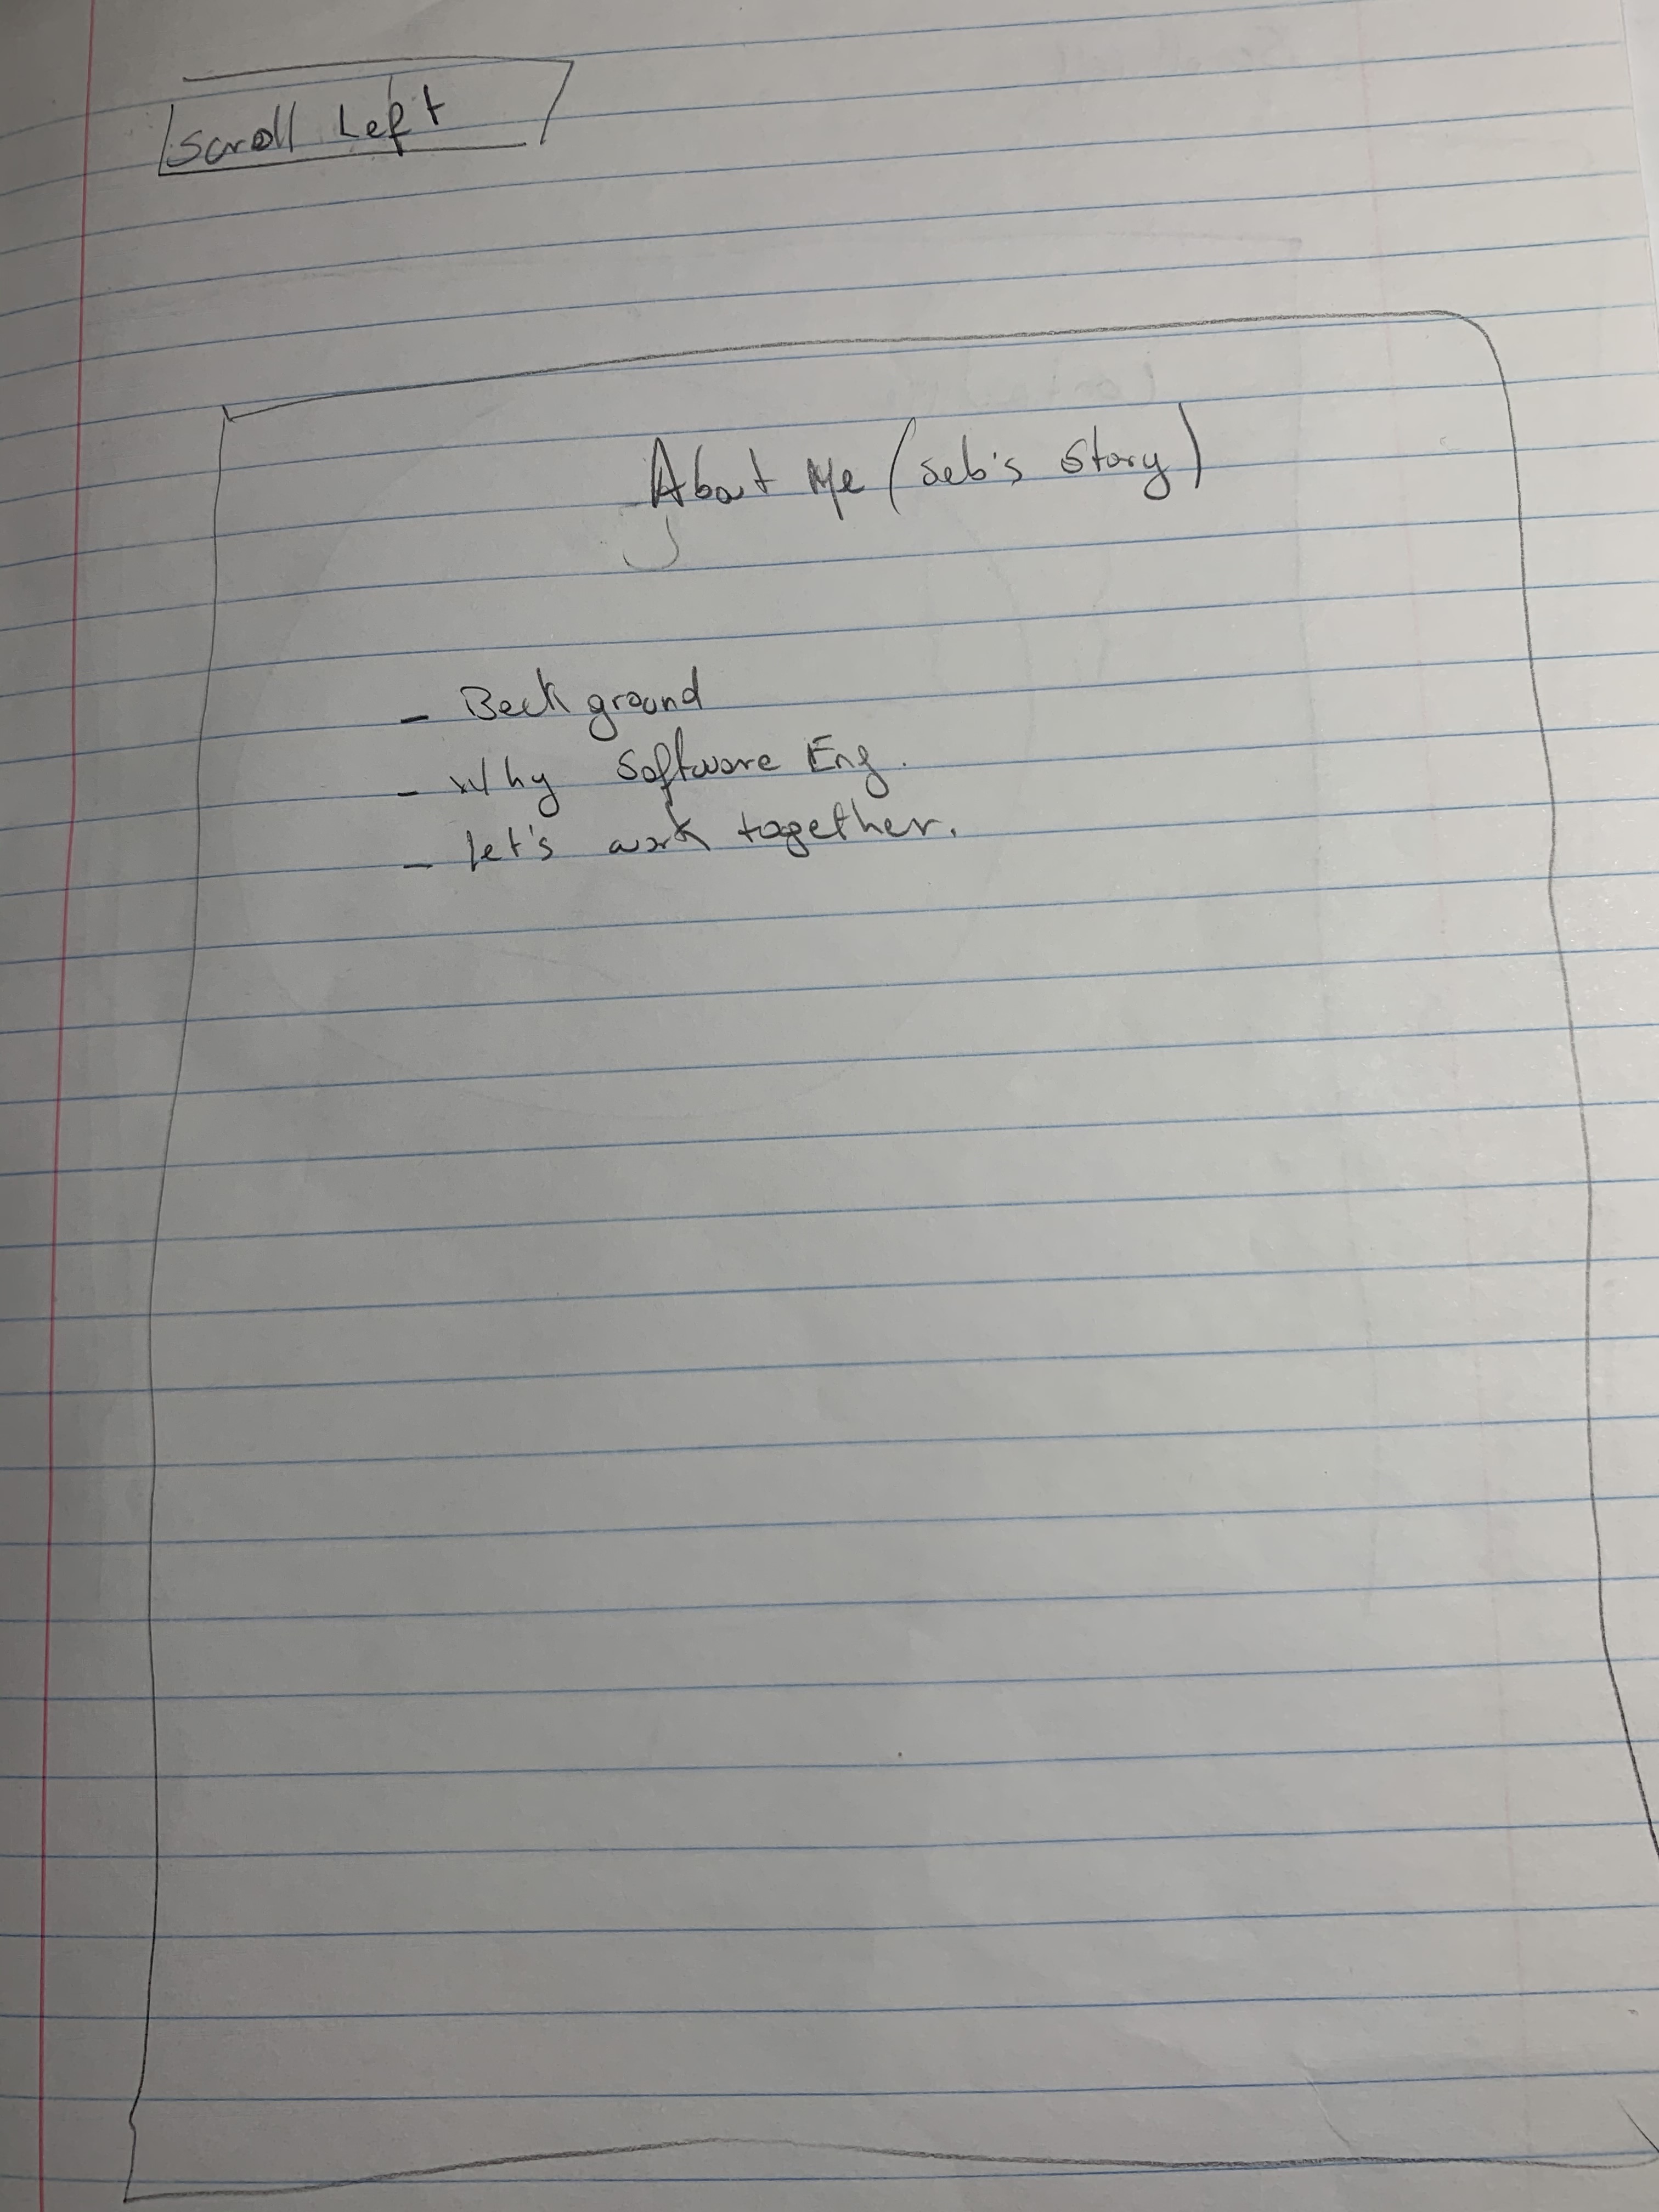 Scroll Left
About Me (Seb's Story)
- Background
- Why Software Eng.
- Let's work together.